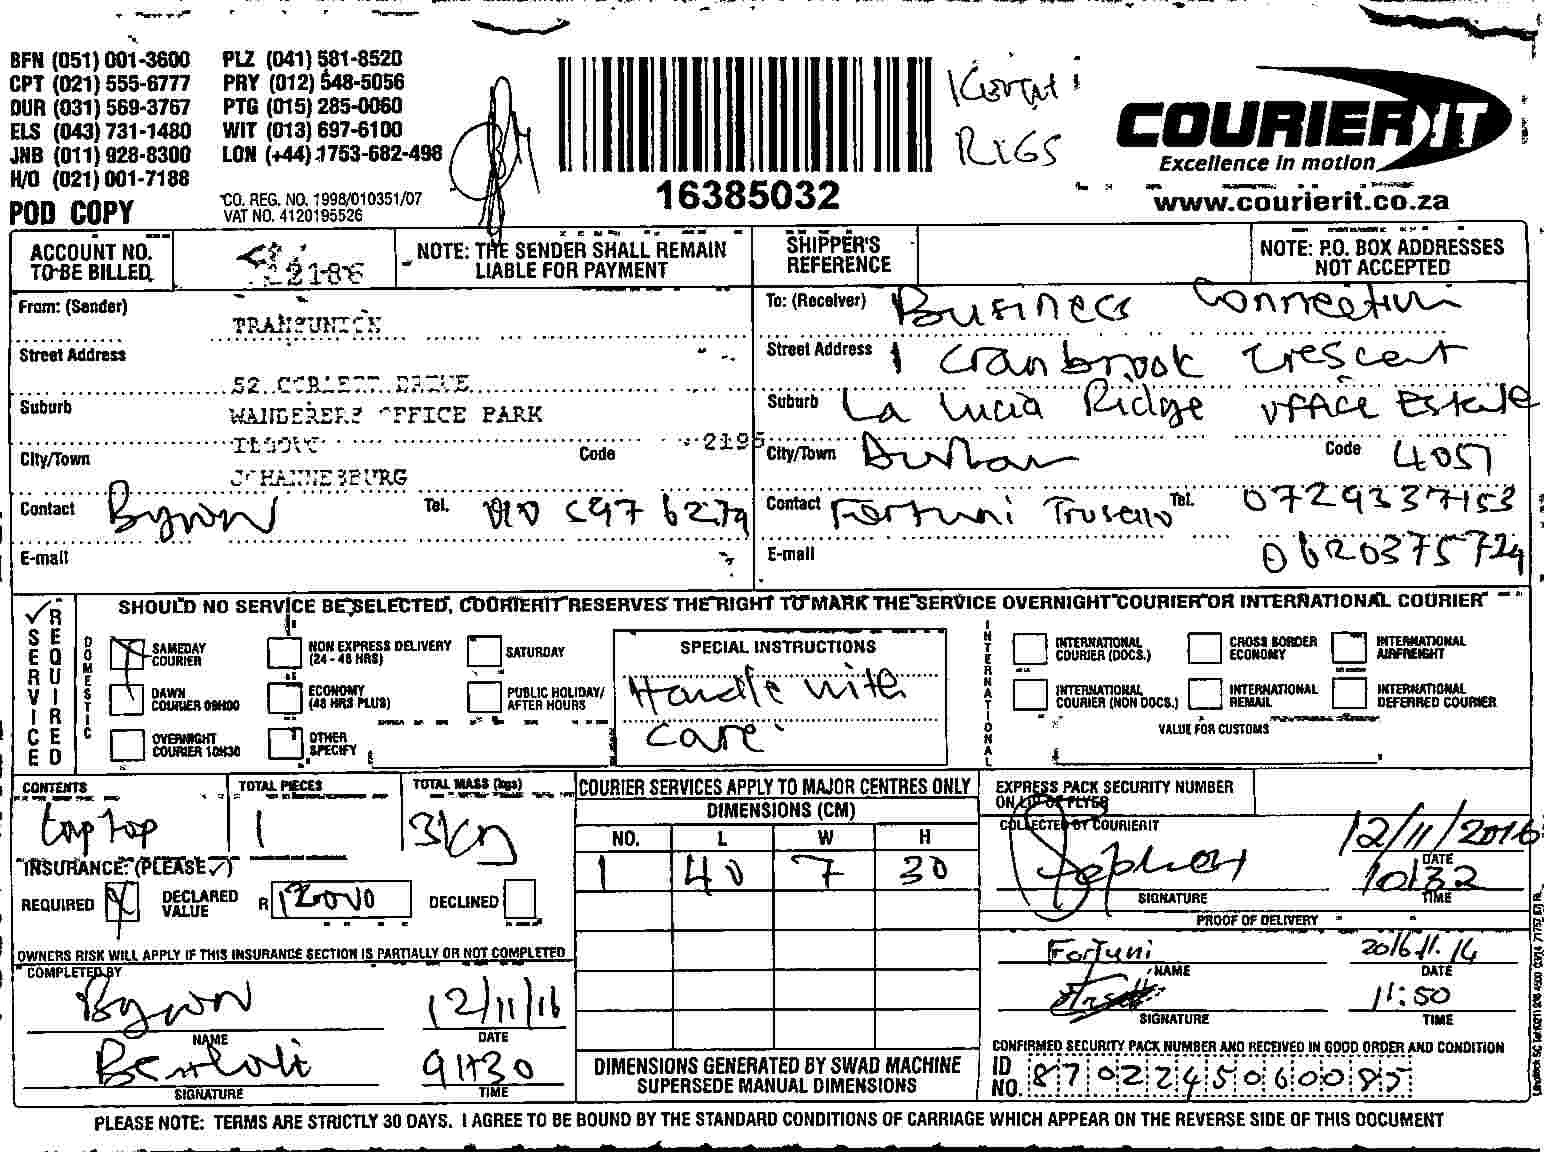 BFN (051) 001-3600 PLZ (041) 581-8520
CPT (021) 555-6777 PRY (012) 548-5056
DUR (031) 569-3767 PTG (015) 285-0060
ELS (043) 731-1480 WIT (013) 697-6100
JNB (011) 928-8300 LON (+44) 1753-682-498
H/O (021) 001-7188
POD COPY
CO. REG. NO. 1998/010351/07
VAT NO. 4120195526
16385032
RIGS
COURIER IT
Excellence in motion
www.courierit.co.za
ACCOUNT NO. TO BE BILLED
NOTE: THE SENDER SHALL REMAIN LIABLE FOR PAYMENT
SHIPPER'S REFERENCE
NOTE: P.O. BOX ADDRESSES NOT ACCEPTED
From: (Sender) TRANSUNION
Street Address
52 CORLETT DRIVE
Suburb WANDERERS OFFICE PARK
City/Town Code 2196
JOHANNESBURG
Contact Byron Tel.
E-mail
To: (Receiver) Business Connection
Street Address 1 Cranbrook Crescent
Suburb La Lucia Ridge Office Estate
City/Town Durban Code 4051
Contact Fortuni Tel. 0729337153
E-mail 0620375724
SERVICE REQUIRED
SHOULD NO SERVICE BE SELECTED, COURIERIT RESERVES THE RIGHT TO MARK THE SERVICE OVERNIGHT COURIER OR INTERNATIONAL COURIER
DOMESTIC
SAMEDAY COURIER
NON EXPRESS DELIVERY (24 - 48 HRS)
SATURDAY
DAWN COURIER 09H00
ECONOMY (48 HRS PLUS)
PUBLIC HOLIDAY/ AFTER HOURS
OVERNIGHT COURIER 10H30
OTHER SPECIFY
SPECIAL INSTRUCTIONS
Handle with
care
INTERNATIONAL
INTERNATIONAL COURIER (DOCS.)
CROSS BORDER ECONOMY
INTERNATIONAL AIRFREIGHT
INTERNATIONAL COURIER (NON DOCS.)
INTERNATIONAL REMAIL
INTERNATIONAL DEFERRED COURIER
VALUE FOR CUSTOMS
CONTENTS TOTAL PIECES TOTAL MASS (kgs)
Laptop 1 3kg
INSURANCE: (PLEASE ✓)
REQUIRED DECLARED VALUE R 12000 DECLINED
OWNERS RISK WILL APPLY IF THIS INSURANCE SECTION IS PARTIALLY OR NOT COMPLETED
COMPLETED BY
Byron 12/11/16
NAME DATE
9H30
SIGNATURE TIME
COURIER SERVICES APPLY TO MAJOR CENTRES ONLY
DIMENSIONS (CM)
NO. L W H
1 40 7 30
DIMENSIONS GENERATED BY SWAD MACHINE
SUPERSEDE MANUAL DIMENSIONS
EXPRESS PACK SECURITY NUMBER
ON LIP OF FLYER
COLLECTED BY COURIERIT
12/11/2016
DATE
Stephen 10:32
SIGNATURE TIME
PROOF OF DELIVERY
Fortuni 2016.11.14
NAME DATE
11:50
SIGNATURE TIME
CONFIRMED SECURITY PACK NUMBER AND RECEIVED IN GOOD ORDER AND CONDITION
ID NO. 8702245060085
PLEASE NOTE: TERMS ARE STRICTLY 30 DAYS. I AGREE TO BE BOUND BY THE STANDARD CONDITIONS OF CARRIAGE WHICH APPEAR ON THE REVERSE SIDE OF THIS DOCUMENT